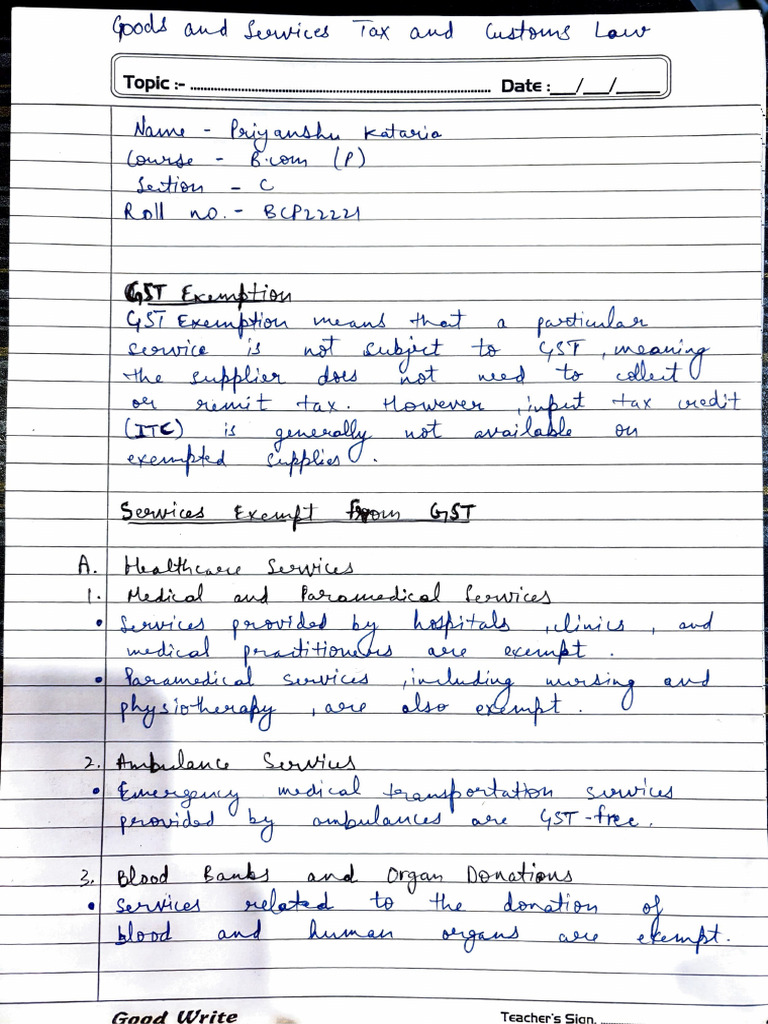 Goods and Services Tax and Customs Law
Topic :- ........................ Date :__/__/____
Name - Priyanshu Kataria
Course - B.com (P)
Section - C
Roll no. - BCP22221
GST Exemption
GST Exemption means that a particular
service is not subject to GST, meaning
the supplier does not need to collect
or remit tax. However, input tax credit
(ITC) is generally not available on
exempted supplies.
Services Exempt From GST
A. Healthcare Services
1. Medical and Paramedical Services
• Services provided by hospitals, clinics, and
medical practitioners are exempt.
• Paramedical services, including nursing and
physiotherapy, are also exempt.
2. Ambulance Services
• Emergency medical transportation services
provided by ambulances are GST-free.
3. Blood Banks and Organ Donations
• Services related to the donation of
blood and human organs are exempt.
Good Write Teacher's Sign. ............